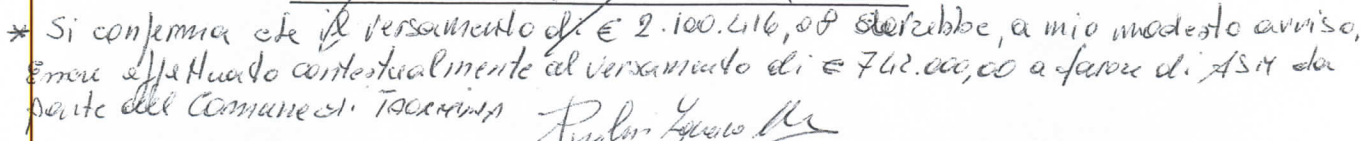 * Si conferma che il versamento di € 2.100.416,08 dovrebbe, a mio modesto avviso,
essere effettuato contestualmente al versamento di € 742.000,00 a favore di ASM da
parte del Comune di TAORMINA